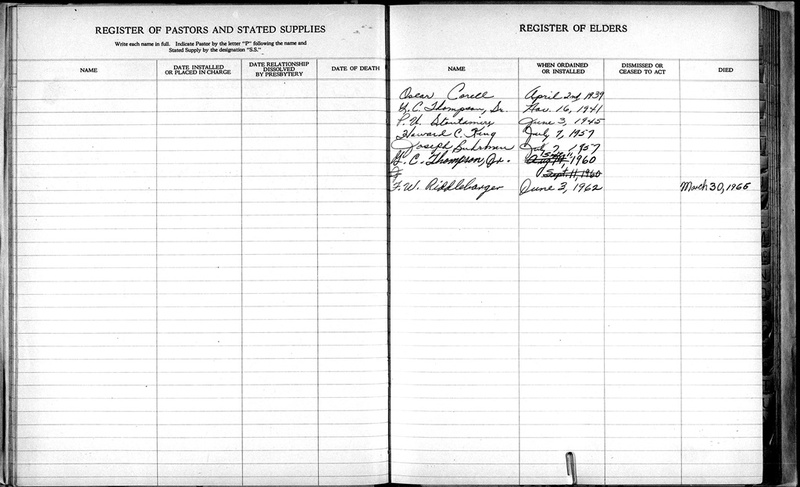 REGISTER OF PASTORS AND STATED SUPPLIES
Write each name in full. Indicate Pastor by the letter "P" following the name and
Stated Supply by the designation "S.S."
NAME
DATE INSTALLED
OR PLACED IN CHARGE
DATE RELATIONSHIP
DISSOLVED
BY PRESBYTERY
DATE OF DEATH
REGISTER OF ELDERS
NAME
WHEN ORDAINED
OR INSTALLED
DISMISSED OR
CEASED TO ACT
DIED
Oscar Corell April 2nd, 1939
Y. C. Thompson, Sr. Nov. 16, 1941
June 3, 1945
Howard C. King July 7, 1957
Joseph Buhrman July 7, 1957
Y. C. Thompson, Jr. Sept. 11, 1960
Sept. 11, 1960
F. W. Riddlebarger June 3, 1962 March 30, 1966